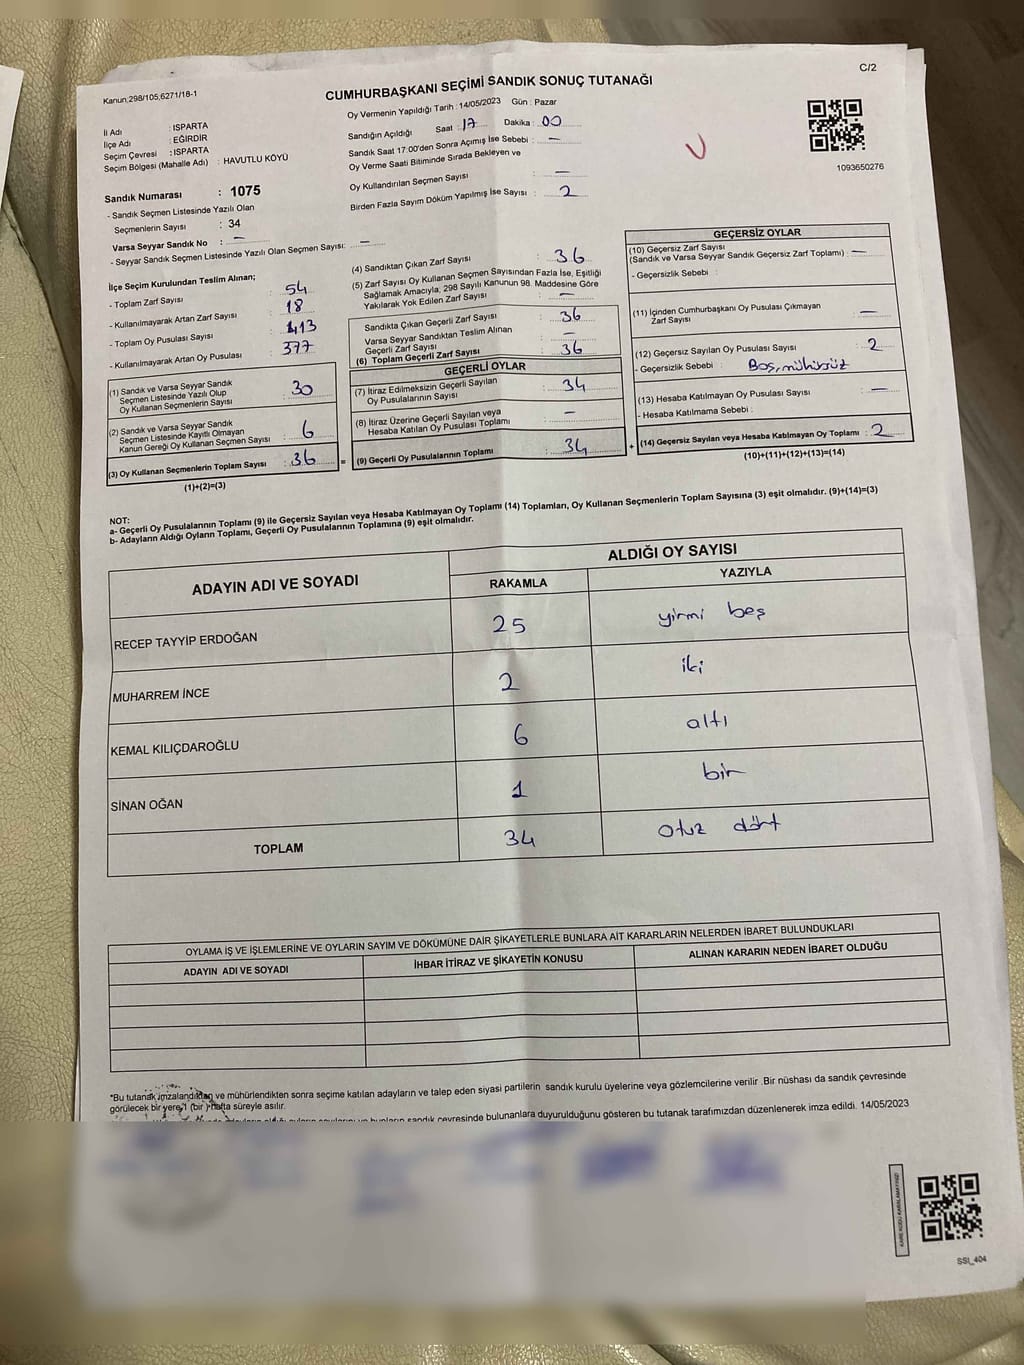 Kanun;298/105,6271/18-1
C/2
CUMHURBAŞKANI SEÇİMİ SANDIK SONUÇ TUTANAĞI
İl Adı : ISPARTA
İlçe Adı : EĞİRDİR
Seçim Çevresi : ISPARTA
Seçim Bölgesi (Mahalle Adı) : HAVUTLU KÖYÜ
Sandık Numarası : 1075
- Sandık Seçmen Listesinde Yazılı Olan
Seçmenlerin Sayısı : 34
Varsa Seyyar Sandık No : —
- Seyyar Sandık Seçmen Listesinde Yazılı Olan Seçmen Sayısı: —
Oy Vermenin Yapıldığı Tarih : 14/05/2023 Gün : Pazar
Sandığın Açıldığı Saat : 17 Dakika : 00
Sandık Saat 17:00'den Sonra Açımış İse Sebebi : —
Oy Verme Saati Bitiminde Sırada Bekleyen ve
Oy Kullandırılan Seçmen Sayısı : —
Birden Fazla Sayım Döküm Yapılmış İse Sayısı : 2
1093650276
İlçe Seçim Kurulundan Teslim Alınan;
- Toplam Zarf Sayısı : 54
- Kullanılmayarak Artan Zarf Sayısı : 18
- Toplam Oy Pusulası Sayısı : 413
- Kullanılmayarak Artan Oy Pusulası : 377
(1) Sandık ve Varsa Seyyar Sandık
Seçmen Listesinde Yazılı Olup
Oy Kullanan Seçmenlerin Sayısı : 30
(2) Sandık ve Varsa Seyyar Sandık
Seçmen Listesinde Kayıtlı Olmayan
Kanun Gereği Oy Kullanan Seçmen Sayısı : 6
(3) Oy Kullanan Seçmenlerin Toplam Sayısı : 36 =
(1)+(2)=(3)
(4) Sandıktan Çıkan Zarf Sayısı : 36
(5) Zarf Sayısı Oy Kullanan Seçmen Sayısından Fazla İse, Eşitliği
Sağlamak Amacıyla; 298 Sayılı Kanunun 98. Maddesine Göre
Yakılarak Yok Edilen Zarf Sayısı : —
Sandıkta Çıkan Geçerli Zarf Sayısı : 36
Varsa Seyyar Sandıktan Teslim Alınan
Geçerli Zarf Sayısı : —
(6) Toplam Geçerli Zarf Sayısı : 36
GEÇERLİ OYLAR
(7) İtiraz Edilmeksizin Geçerli Sayılan
Oy Pusulalarının Sayısı : 34
(8) İtiraz Üzerine Geçerli Sayılan veya
Hesaba Katılan Oy Pusulası Toplamı : —
(9) Geçerli Oy Pusulalarının Toplamı : 34 +
GEÇERSİZ OYLAR
(10) Geçersiz Zarf Sayısı
(Sandık ve Varsa Seyyar Sandık Geçersiz Zarf Toplamı) : —
- Geçersizlik Sebebi :
(11) İçinden Cumhurbaşkanı Oy Pusulası Çıkmayan
Zarf Sayısı : —
(12) Geçersiz Sayılan Oy Pusulası Sayısı : 2
- Geçersizlik Sebebi : Boş, mühürsüz
(13) Hesaba Katılmayan Oy Pusulası Sayısı : —
- Hesaba Katılmama Sebebi :
(14) Geçersiz Sayılan veya Hesaba Katılmayan Oy Toplamı : 2
(10)+(11)+(12)+(13)=(14)
NOT:
a- Geçerli Oy Pusulalarının Toplamı (9) ile Geçersiz Sayılan veya Hesaba Katılmayan Oy Toplamı (14) Toplamları, Oy Kullanan Seçmenlerin Toplam Sayısına (3) eşit olmalıdır. (9)+(14)=(3)
b- Adayların Aldığı Oyların Toplamı, Geçerli Oy Pusulalarının Toplamına (9) eşit olmalıdır.
ADAYIN ADI VE SOYADI ALDIĞI OY SAYISI
RAKAMLA YAZIYLA
RECEP TAYYİP ERDOĞAN 25 yirmi beş
MUHARREM İNCE 2 iki
KEMAL KILIÇDAROĞLU 6 altı
SİNAN OĞAN 1 bir
TOPLAM 34 otuz dört
OYLAMA İŞ VE İŞLEMLERİNE VE OYLARIN SAYIM VE DÖKÜMÜNE DAİR ŞİKAYETLERLE BUNLARA AİT KARARLARIN NELERDEN İBARET BULUNDUKLARI
ADAYIN ADI VE SOYADI İHBAR İTİRAZ VE ŞİKAYETİN KONUSU ALINAN KARARIN NEDEN İBARET OLDUĞU
*Bu tutanak imzalandıktan ve mühürlendikten sonra seçime katılan adayların ve talep eden siyasi partilerin sandık kurulu üyelerine veya gözlemcilerine verilir .Bir nüshası da sandık çevresinde
görülecek bir yere 1 (bir ) hafta süreyle asılır.
bunların sandık çevresinde bulunanlara duyurulduğunu gösteren bu tutanak tarafımızdan düzenlenerek imza edildi. 14/05/2023
SSI_404